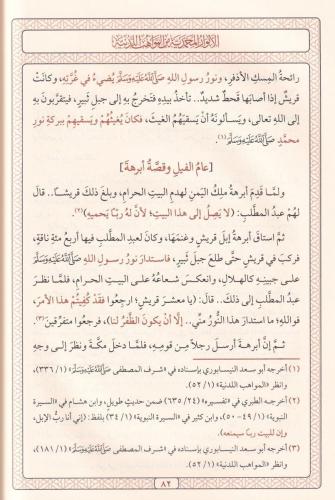 الأنوار المحمدية من المواهب اللدنية
رائحةُ المِسكِ الأَذفرِ، ونورُ رسولِ اللهِ صَلَّى اللهُ عَلَيْهِ وَسَلَّمَ يُضيءُ في غُرَّتِهِ، وكانَتْ
قريشٌ إذا أصابَها قحطٌ شديدٌ.. تأخذُ بيدِهِ فتَخرجُ بِهِ إلى جبلِ ثَبيرٍ، فيتقرَّبونَ بِهِ
إلى اللهِ تعالى، ويسألونَهُ أنْ يسقيَهُمُ الغيثَ، فكانَ يُغيثُهُمْ ويَسقيهِمْ ببركةِ نورِ
محمَّدٍ صَلَّى اللهُ عَلَيْهِ وَسَلَّمَ(١).
[عامُ الفيلِ وقصَّةُ أبرهةَ]
ولمَّا قَدِمَ أبرهةُ ملِكُ اليَمنِ لهدمِ البيتِ الحرامِ، وبلغَ ذلكَ قريشاً.. قالَ
لهُمْ عبدُ المطَّلبِ: (لا يَصِلُ إلى هذا البيتِ؛ لأنَّ لهُ ربّاً يَحميهِ)(٢).
ثمَّ استاقَ أبرهةُ إبلَ قريشٍ وغنمَها، وكانَ لعبدِ المطَّلبِ فيها أربعُ مئةِ ناقةٍ،
فركبَ في قريشٍ حتَّى طلعَ جبلَ ثَبيرٍ، فاستدارَ نورُ رسولِ اللهِ صَلَّى اللهُ عَلَيْهِ وَسَلَّمَ
على جبينِهِ كالهلالِ، وانعكسَ شعاعُهُ على البيتِ الحرامِ، فلمَّا نظرَ
عبدُ المطَّلبِ إلى ذلكَ.. قالَ: (يا معشرَ قريشٍ؛ ارجِعُوا فقدْ كُفِيتُمْ هذا الأمرَ،
فواللهِ؛ ما استدارَ هذا النُّورُ منِّي.. إلَّا أنْ يكونَ الظَّفرُ لنا)، فرجعُوا متفرِّقينَ(٣).
ثمَّ إنَّ أبرهةَ أرسلَ رجلاً مِنْ قومِهِ، فلمَّا دخلَ مكَّةَ ونظرَ إلى وجهِ
(١) أخرجه أبو سعد النيسابوري بإسناده في «شرف المصطفى صَلَّى اللهُ عَلَيْهِ وَسَلَّمَ» (٣٣٦/١)،
وانظر «المواهب اللدنية» (٥٢/١).
(٢) أخرجه الطبري في «تفسيره» (٦٣٥/٢٤) ضمن حديث طويل، وابن هشام في «السيرة
النبوية» (٤٩/١-٥٠)، وابن كثير في «السيرة النبوية» (٣٤/١) بلفظ: (إني أنا ربُّ الإبل،
وإن للبيت ربّاً سيمنعه).
(٣) أخرجه أبو سعد النيسابوري بإسناده في «شرف المصطفى صَلَّى اللهُ عَلَيْهِ وَسَلَّمَ» (١٨١/١)،
وانظر «المواهب اللدنية» (٥٢/١).
٨٢